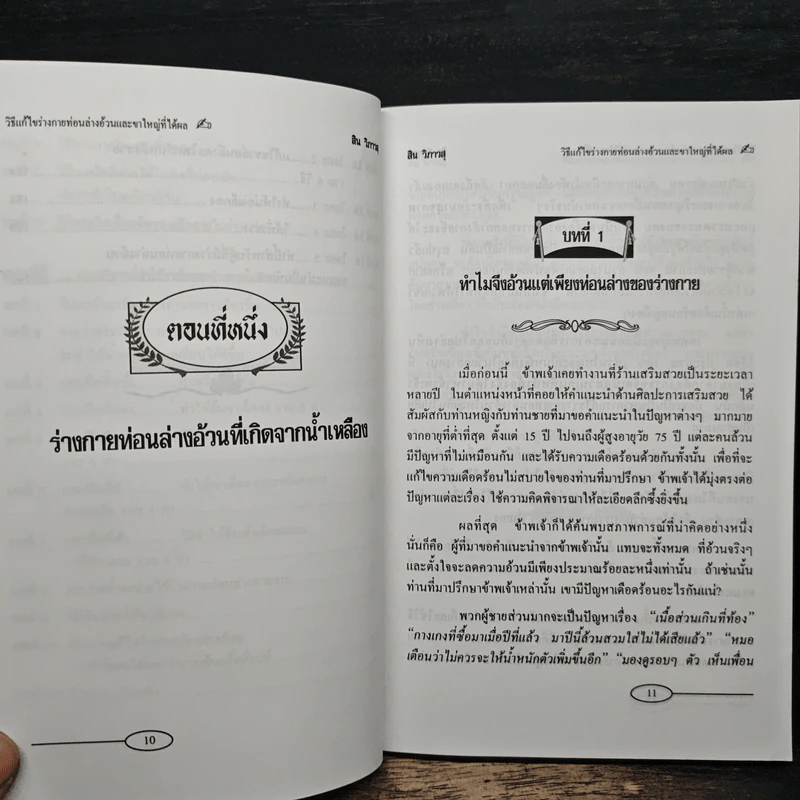 วิธีแก้ไขร่างกายท่อนล่างอ้วนและขาใหญ่ที่ได้ผล
สิน วิภาวสุ
ตอนที่หนึ่ง
ร่างกายท่อนล่างอ้วนที่เกิดจากน้ำเหลือง
10
สิน วิภาวสุ
วิธีแก้ไขร่างกายท่อนล่างอ้วนและขาใหญ่ที่ได้ผล
บทที่ 1
ทำไมจึงอ้วนแต่เพียงท่อนล่างของร่างกาย
เมื่อก่อนนี้ ข้าพเจ้าเคยทำงานที่ร้านเสริมสวยเป็นระยะเวลา
หลายปี ในตำแหน่งหน้าที่คอยให้คำแนะนำด้านศิลปะการเสริมสวย ได้
สัมผัสกับท่านหญิงกับท่านชายที่มาขอคำแนะนำในปัญหาต่างๆ มากมาย
จากอายุที่ต่ำที่สุด ตั้งแต่ 15 ปี ไปจนถึงผู้สูงอายุวัย 75 ปี แต่ละคนล้วน
มีปัญหาที่ไม่เหมือนกัน และได้รับความเดือดร้อนด้วยกันทั้งนั้น เพื่อที่จะ
แก้ไขความเดือดร้อนไม่สบายใจของท่านที่มาปรึกษา ข้าพเจ้าได้มุ่งตรงต่อ
ปัญหาแต่ละเรื่อง ใช้ความคิดพิจารณาให้ละเอียดลึกซึ้งยิ่งขึ้น
ผลที่สุด ข้าพเจ้าก็ได้ค้นพบสภาพการณ์ที่น่าคิดอย่างหนึ่ง
นั่นก็คือ ผู้ที่มาขอคำแนะนำจากข้าพเจ้านั้น แทบจะทั้งหมด ที่อ้วนจริงๆ
และตั้งใจจะลดความอ้วนมีเพียงประมาณร้อยละหนึ่งเท่านั้น ถ้าเช่นนั้น
ท่านที่มาปรึกษาข้าพเจ้าเหล่านั้น เขามีปัญหาเดือดร้อนอะไรกันแน่?
พวกผู้ชายส่วนมากจะเป็นปัญหาเรื่อง “เนื้อส่วนเกินที่ท้อง”
“กางเกงที่ซื้อมาเมื่อปีที่แล้ว มาปีนี้ล้วนสวมใส่ไม่ได้เสียแล้ว” “หมอ
เตือนว่าไม่ควรจะให้น้ำหนักตัวเพิ่มขึ้นอีก” “มองดูรอบๆ ตัว เห็นเพื่อน
11